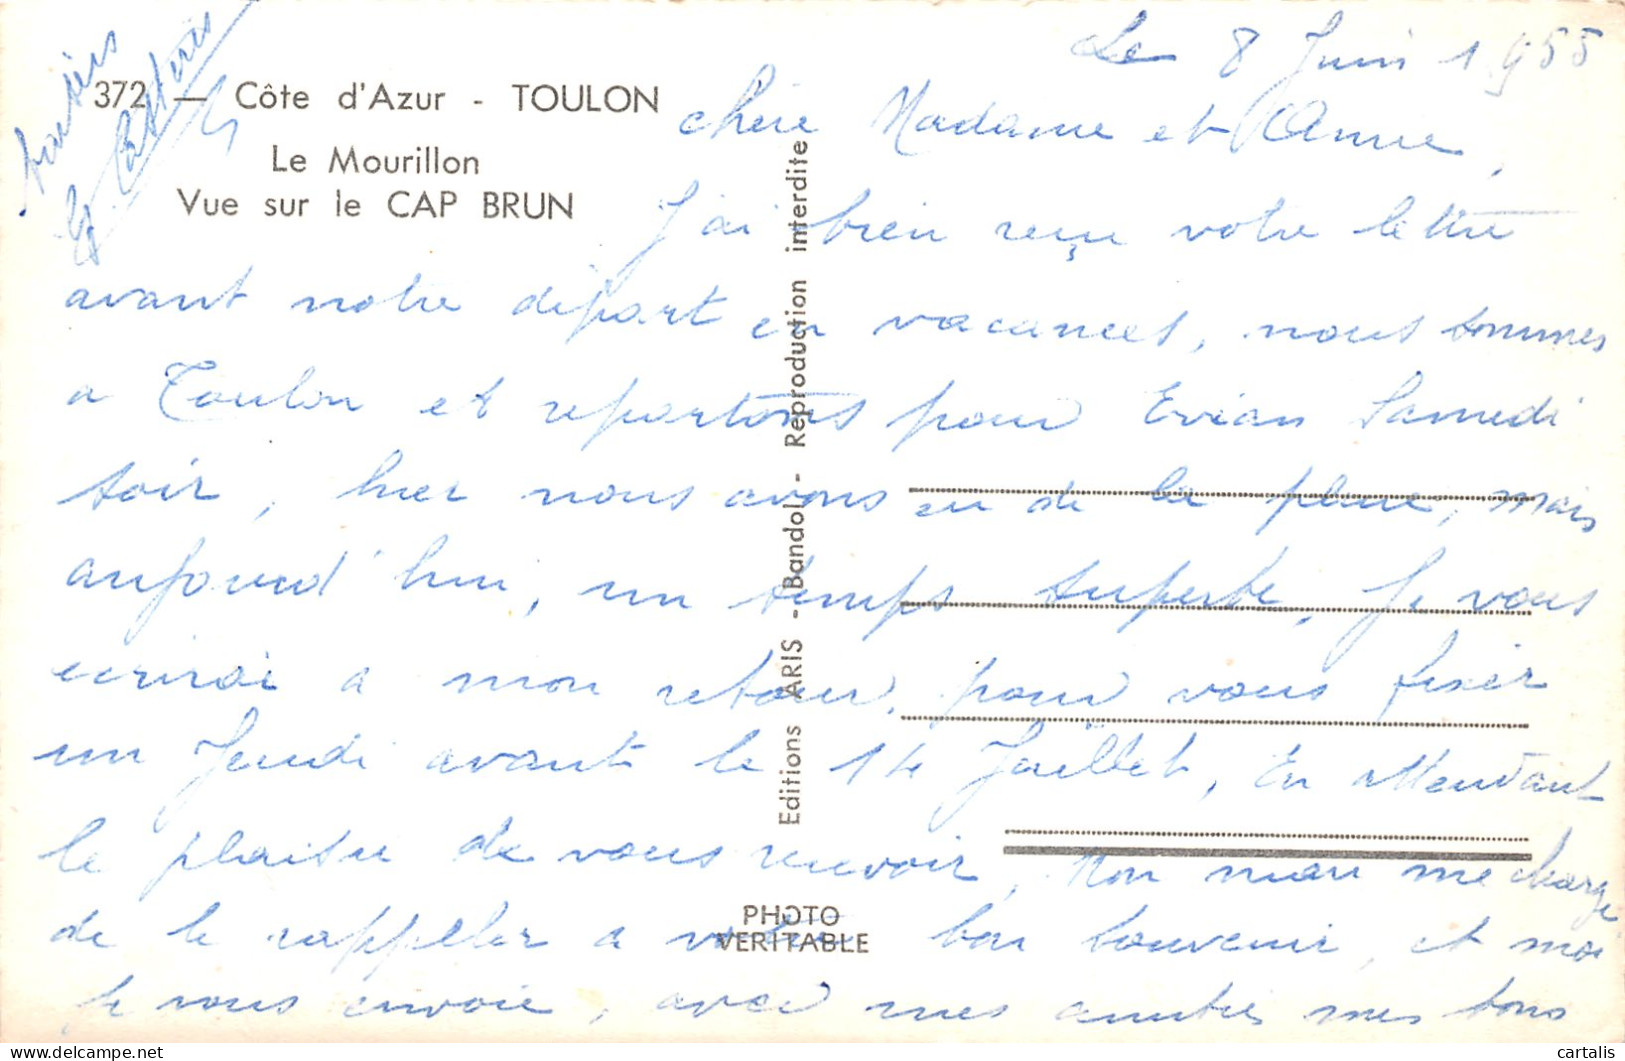 Le 8 Juin 1955
372 — Côte d'Azur - TOULON
Le Mourillon
Vue sur le CAP BRUN
chère Madame et Annie,
J'ai bien reçu votre lettre
avant notre départ en vacances, nous sommes
a Toulon et repartons pour Evian Samedi
soir, hier nous avons eu de la pluie, mais
aujourd'hui, un temps superbe, Je vous
ecrirai a mon retour, pour vous fixer
un Jeudi avant le 14 Juillet, En attendant
le plaisir de vous revoir, Mon mari me charge
de le rappeler a votre bon souvenir, et moi
je vous envoie, avec mes amitiés mes bons
baisers
G.
Editions ARIS - Bandol - Reproduction interdite
PHOTO
VERITABLE
cartalis